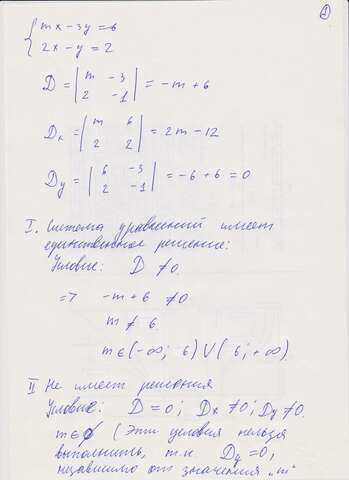 ①
{ mx - 3y = 6
2x - y = 2
D = | m -3 | = -m + 6
| 2 -1 |
Dx = | m 6 | = 2m - 12
| 2 2 |
Dy = | 6 -3 | = -6 + 6 = 0
| 2 -1 |
I. Система уравнений имеет
единственное решение:
Условие: D ≠ 0.
=> -m + 6 ≠ 0
m ≠ 6
m ∈ (-∞; 6) ∪ (6; +∞)
II Не имеет решения
Условие: D = 0; Dx ≠ 0; Dy ≠ 0.
m ∈ ∅ (Эти условия нельзя
выполнить, т.к. Dy = 0,
независимо от значения „m"